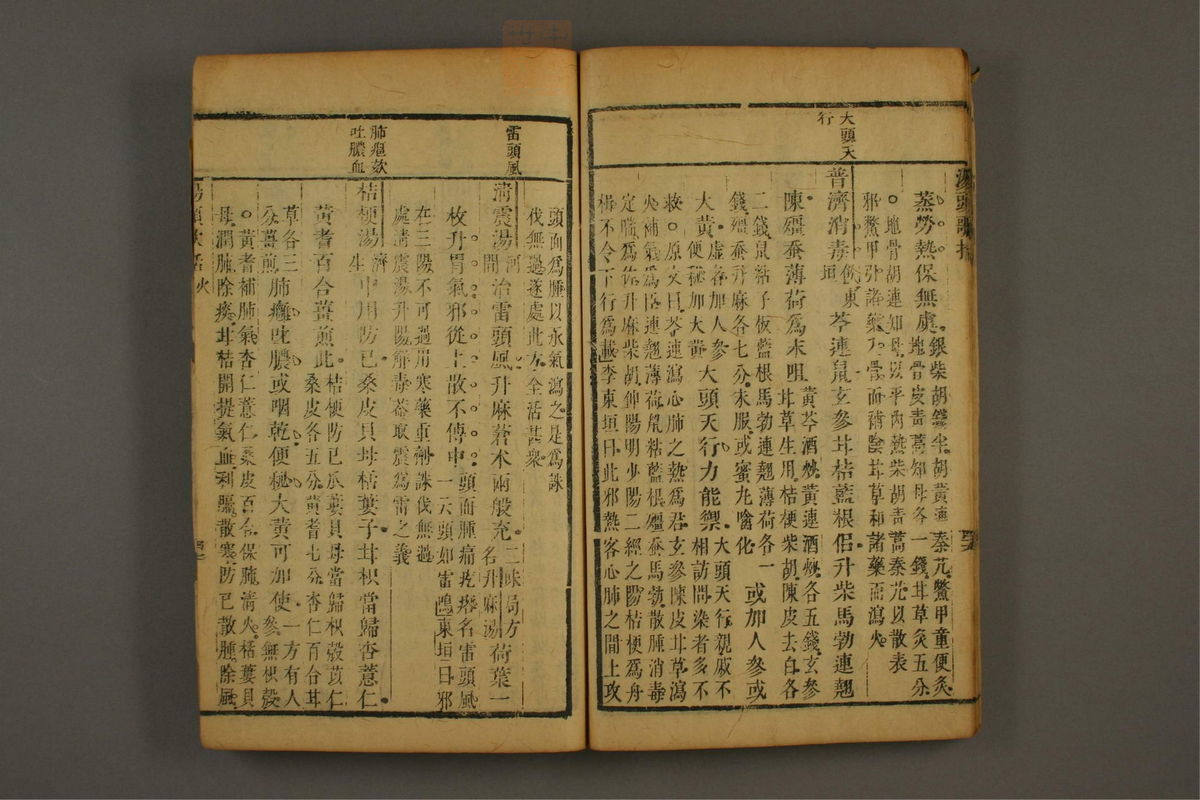 大頭天
行
湯頭歌括
蒸勞熱保無虞
銀柴胡錢半胡黃連秦艽鱉甲童便炙
地骨皮青蒿知母各一錢甘草炙五分
○地骨胡連知母以平內熱柴胡青蒿秦艽以散表
邪鱉甲引諸藥入骨而補陰甘草和諸藥而瀉火
普濟消毒飲東垣芩連鼠玄參甘桔藍根侶升柴馬勃連翹
陳殭蠶薄荷爲末咀
黃芩酒炒黃連酒炒各五錢玄參
甘草生用桔梗柴胡陳皮去白各
二錢鼠粘子板藍根馬勃連翹薄荷各一
錢殭蠶升麻各七分末服或蜜丸噙化
或加人參或
大黃
虛者加人參
便秘加大黃
大頭天行力能禦
大頭天行親戚不
相訪問染者多不
救○原文曰芩連瀉心肺之熱爲君玄參陳皮甘草瀉
火補氣爲臣連翹薄荷鼠粘藍根殭蠶馬勃散腫消毒
定喘爲佐升麻柴胡伸陽明少陽二經之陽桔梗爲舟
楫不令下行爲載李東垣曰此邪熱客心肺之間上攻
雷頭風
肺癰欬
吐膿血
頭面爲腫以承氣瀉之是爲誅
伐無過遂處此方全活甚衆
清震湯河間治雷頭風升麻蒼朮兩般充
二味局方
名升麻湯
荷葉一
枚升胃氣邪從上散不傳中
頭面腫痛疙瘩名雷頭風
一云頭如雷鳴東垣曰邪
在三陽不可過用寒藥重劑誅伐無過
處清震湯升陽解毒葢取震爲雷之義
桔梗湯濟生中用防已桑皮貝母栝蔞子甘枳當歸杏薏仁
黃耆百合薑煎此
桔梗防已瓜蔞貝母當歸枳殼苡仁
桑皮各五分黃耆七分杏仁百合甘
草各三
分薑煎
肺癰吐膿或咽乾便秘大黃可加使
一方有人
參無枳殼
○黃耆補肺氣杏仁薏仁桑皮百合保肺清火栝蔞貝
母潤肺除痰甘桔開提氣血利膈散寒防已散腫除風